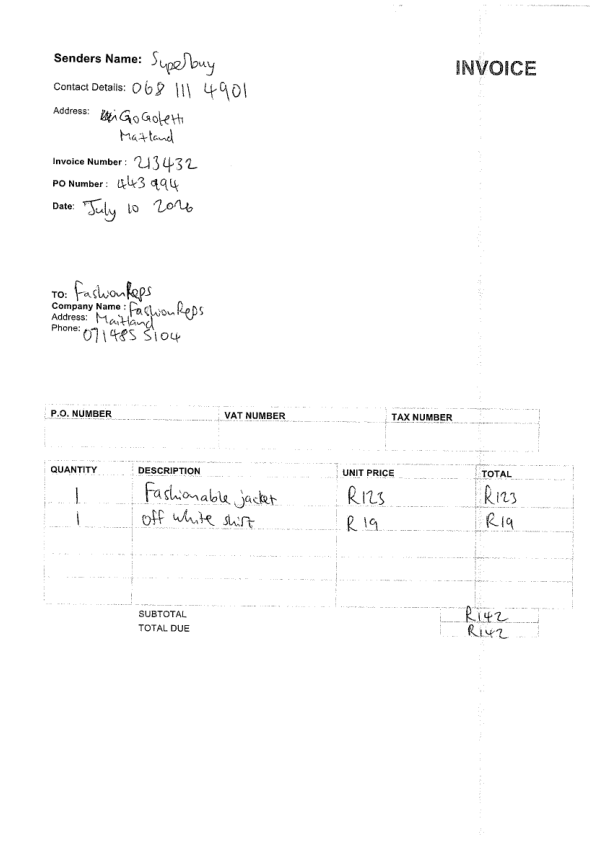 Senders Name: Superbuy
INVOICE
Contact Details: 068 111 4901
Address:
Maitland
Invoice Number : 213432
PO Number : 443 994
Date: July 10 2026
TO: FashionReps
Company Name : FashionReps
Address: Maitland
Phone: 071485 5104
P.O. NUMBER VAT NUMBER TAX NUMBER
QUANTITY DESCRIPTION UNIT PRICE TOTAL
1 Fashionable jacket R123 R123
1 Off white shirt R 19 R19
SUBTOTAL R142
TOTAL DUE R142